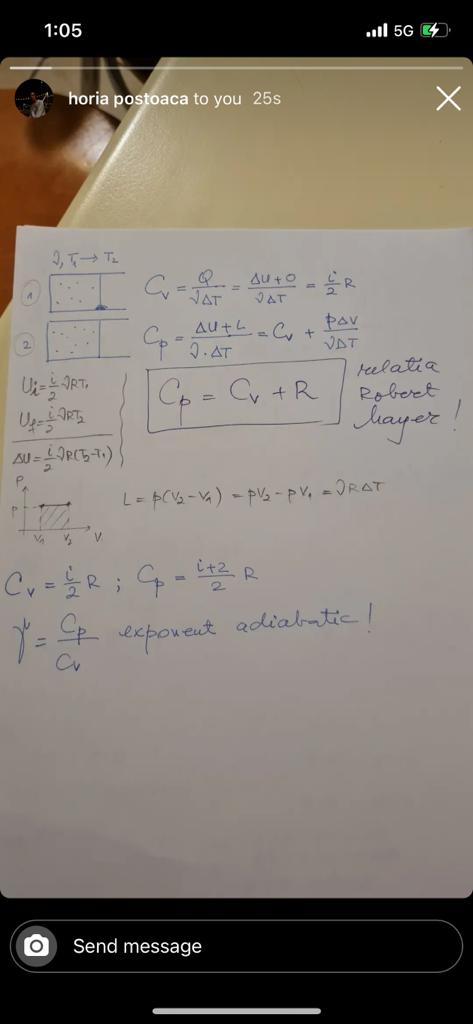 1:05
5G
horia postoaca to you 25s
ν, T₁ → T₂
1
Cᵥ = Q/νΔT = ΔU+0/νΔT = i/2 R
2
Cₚ = ΔU+L/ν·ΔT = Cᵥ + pΔV/νΔT
Uᵢ = i/2 νRT₁
U_f = i/2 νRT₂
ΔU = i/2 νR(T₂-T₁)
Cₚ = Cᵥ + R
relatia
Robert
Mayer!
P
p
V₁ V₂ V
L = p(V₂ - V₁) = pV₂ - pV₁ = νRΔT
Cᵥ = i/2 R ; Cₚ = i+2/2 R
γ = Cₚ/Cᵥ exponent adiabatic!
Send message